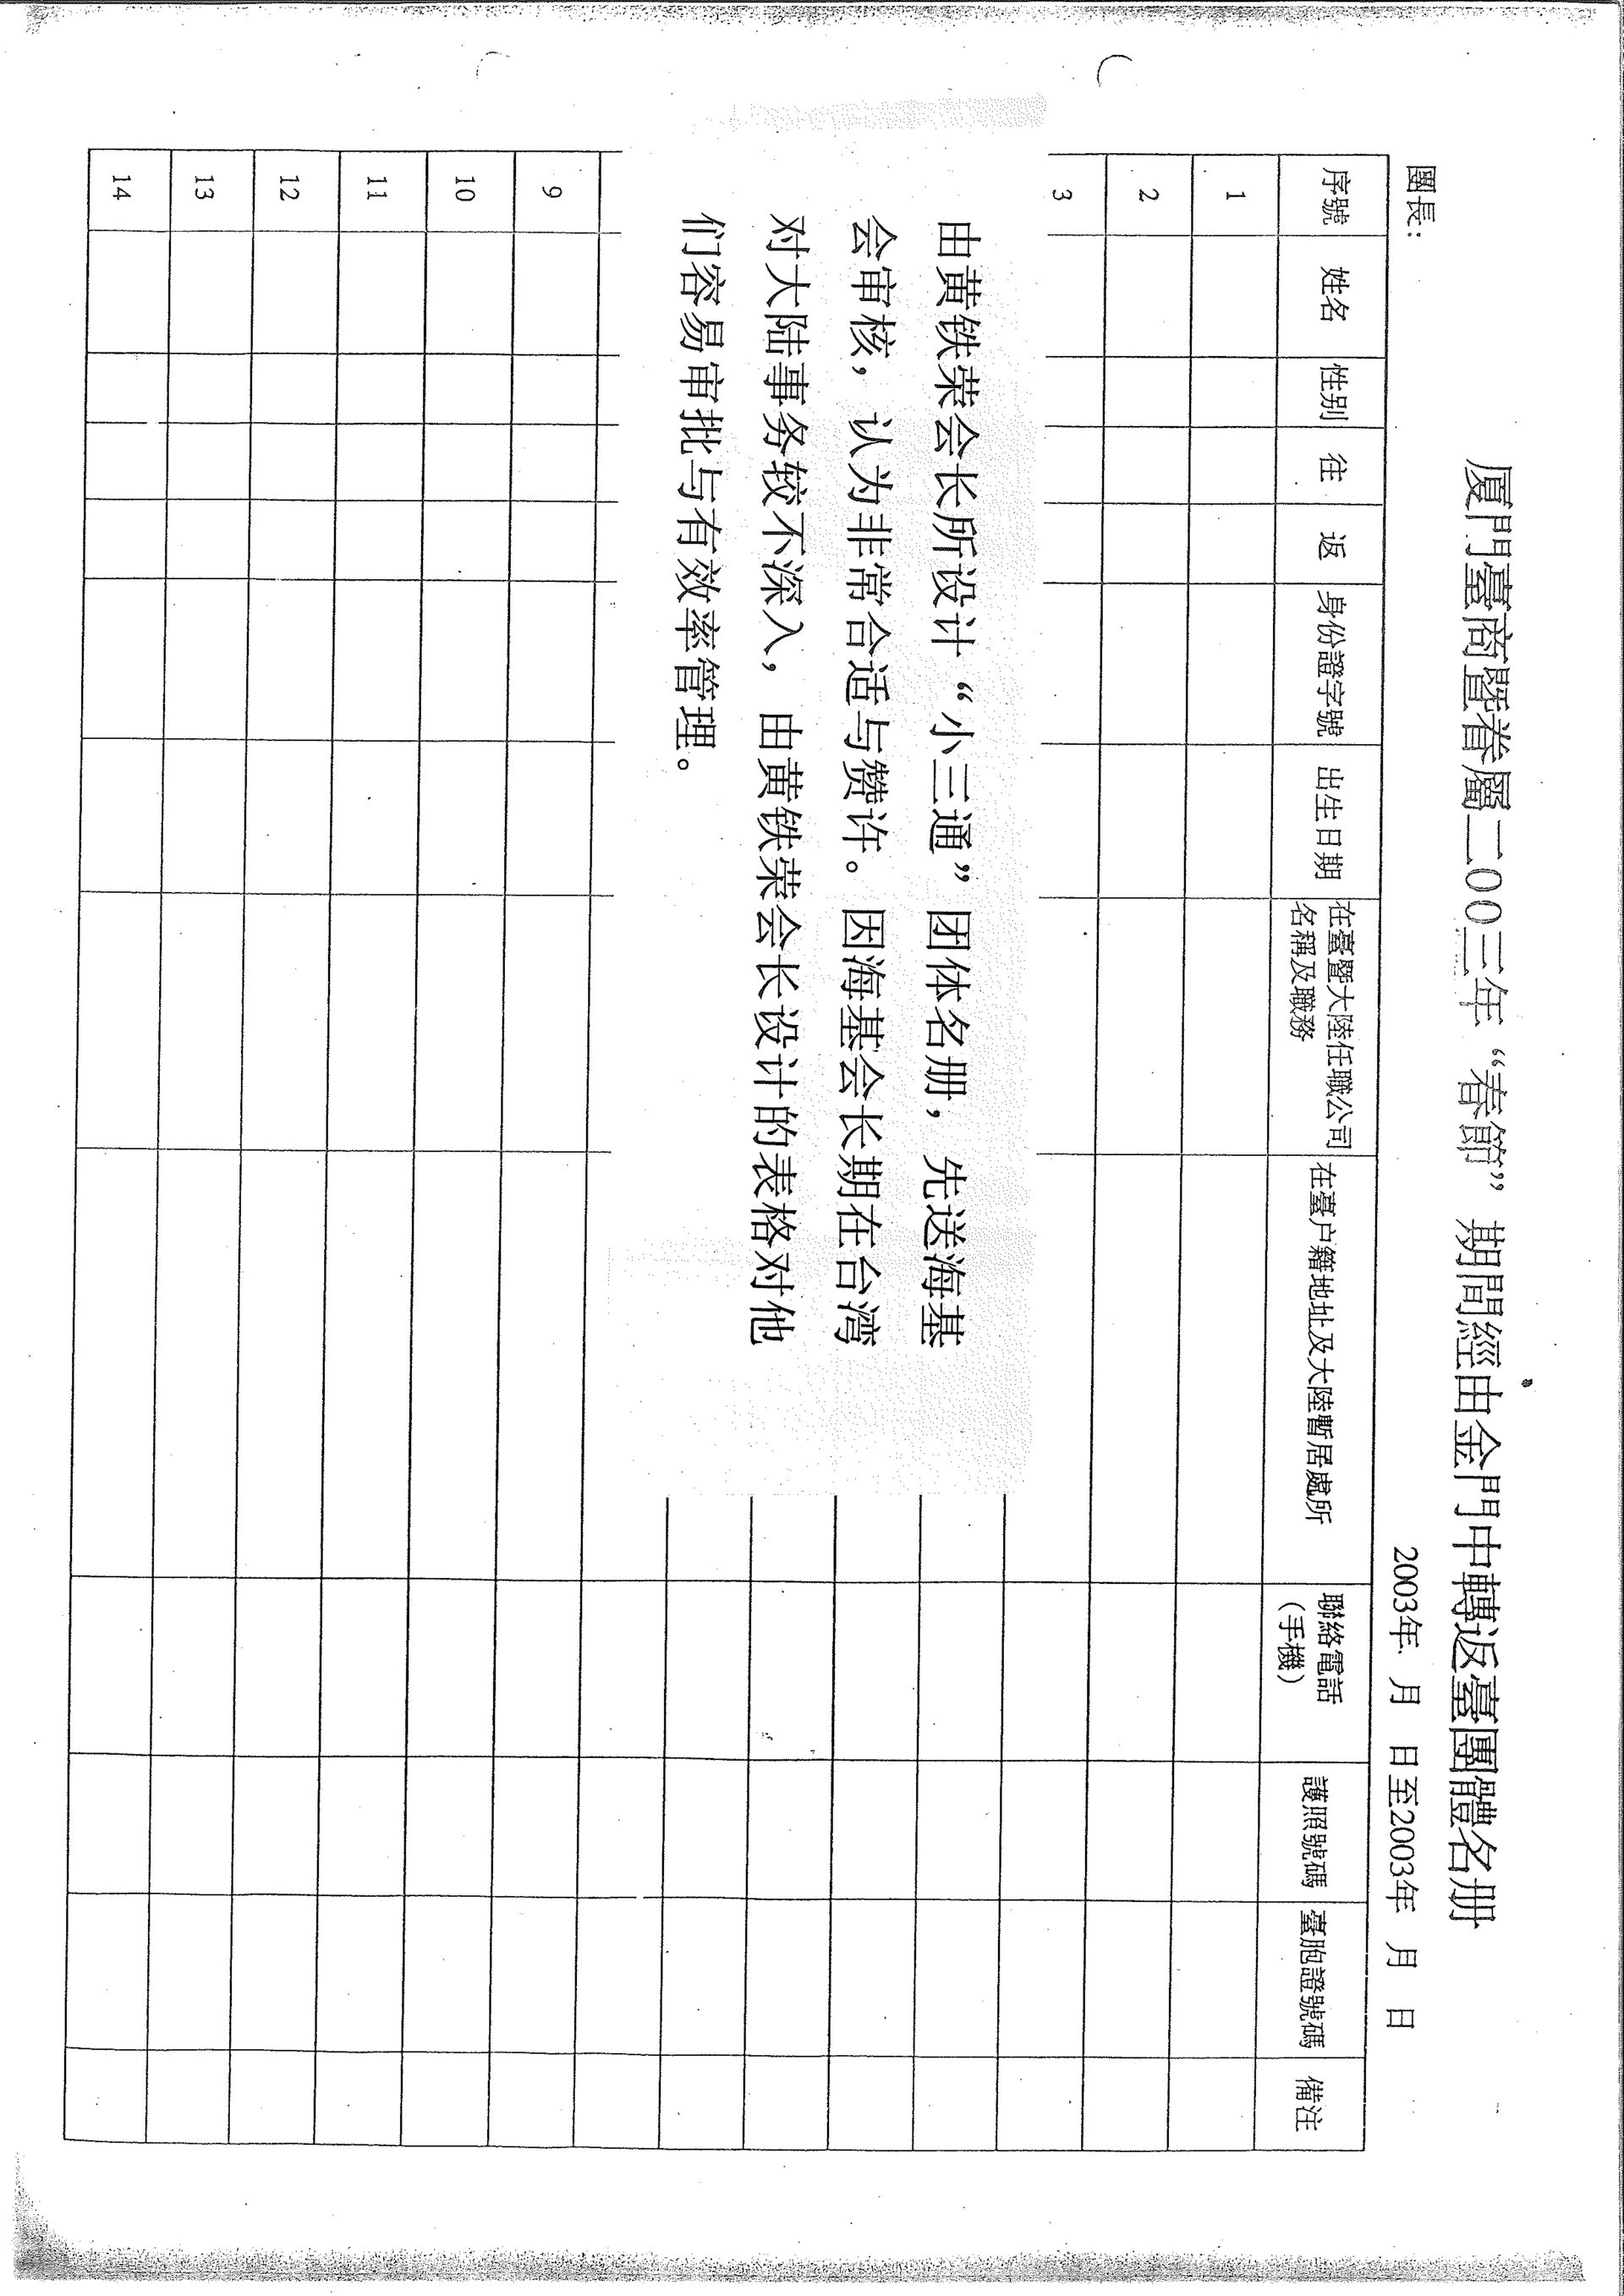 厦門臺商暨眷屬二00三年“春節”期間經由金門中轉返臺團體名册
團長:
2003年 月 日至2003年 月 日
序號 姓名 性别 往 返 身份證字號 出生日期 在臺暨大陸任職公司名稱及職務 在臺户籍地址及大陸暫居處所 聯絡電話（手機） 護照號碼 臺胞證號碼 備注
1
2
3
由黄铁荣会长所设计“小三通”团体名册，先送海基
会审核，认为非常合适与赞许。因海基会长期在台湾
对大陆事务较不深入，由黄铁荣会长设计的表格对他
们容易审批与有效率管理。
9
10
11
12
13
14